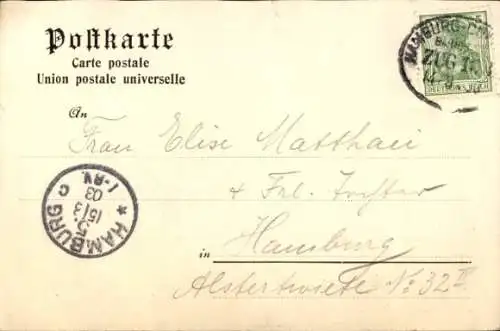 Postkarte
Carte postale
Union postale universelle
An
Frau Elise Matthaei
& Frl. Tochter
in Hamburg
Alstertwiete No: 32 III
HAMBURG
ZUG
DEUTSCHES REICH
* HAMBURG *
5.
15/3
03
1-2N.
C